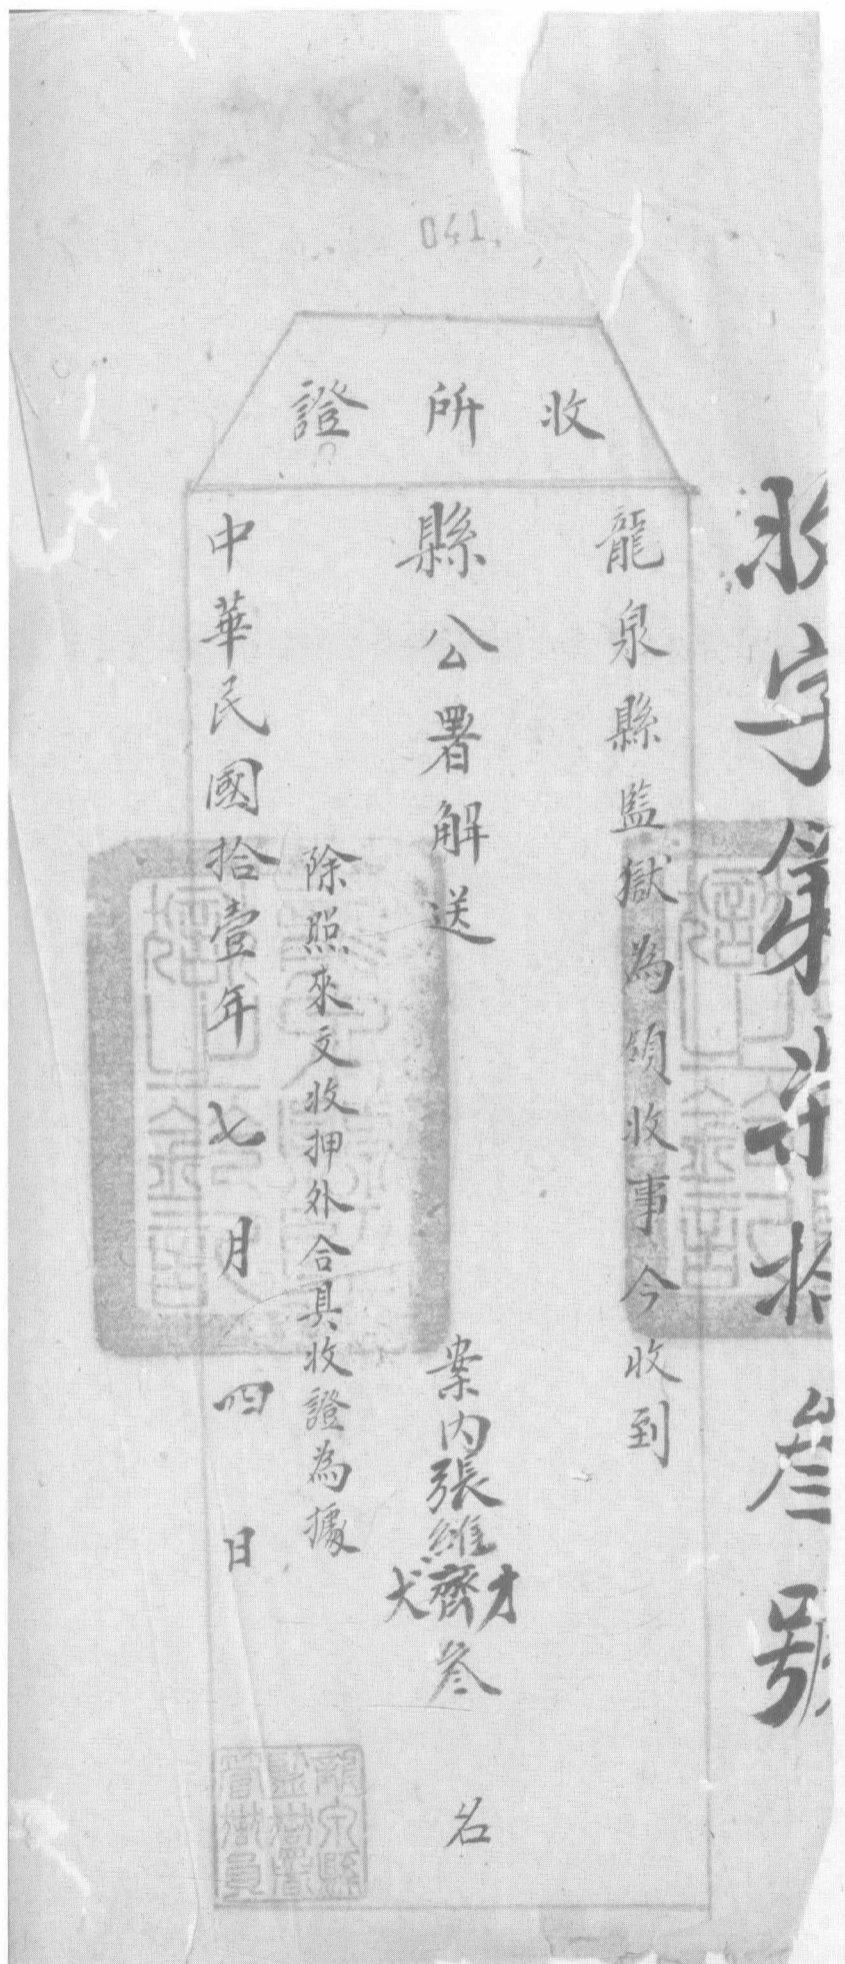 041.
收所證
收字第柒拾叁號
龍泉縣監獄為領收事今收到
縣公署解送
案內張維才齊犬叁名
除照來文收押外合具收證為據
中華民國拾壹年七月四日
龍泉縣監獄署管獄員